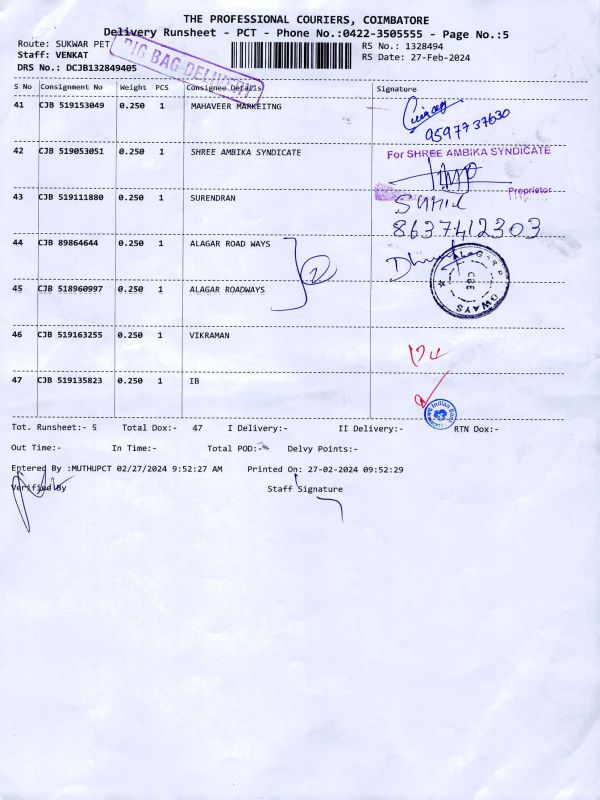 THE PROFESSIONAL COURIERS, COIMBATORE
Delivery Runsheet - PCT - Phone No.:0422-3505555 - Page No.:5
Route: SUKWAR PET
RS No.: 1328494
Staff: VENKAT
RS Date: 27-Feb-2024
DRS No.: DCJB132849405
BIG BAG DELIVERY
S No Consignment No Weight PCS Consignee Details Signature
41 CJB 519153049 0.250 1 MAHAVEER MARKEITNG
9597737630
42 CJB 519053051 0.250 1 SHREE AMBIKA SYNDICATE For SHREE AMBIKA SYNDICATE
Proprietor
43 CJB 519111880 0.250 1 SURENDRAN
Sunil
8637412303
44 CJB 89864644 0.250 1 ALAGAR ROAD WAYS
2
ALAGAR ROADWAYS
CBE
45 CJB 518960997 0.250 1 ALAGAR ROADWAYS
46 CJB 519163255 0.250 1 VIKRAMAN
47 CJB 519135823 0.250 1 IB
Indian Bank
Tot. Runsheet:- 5 Total Dox:- 47 I Delivery:- II Delivery:- RTN Dox:-
Out Time:- In Time:- Total POD:- Delvy Points:-
Entered By :MUTHUPCT 02/27/2024 9:52:27 AM Printed On: 27-02-2024 09:52:29
Verified By Staff Signature